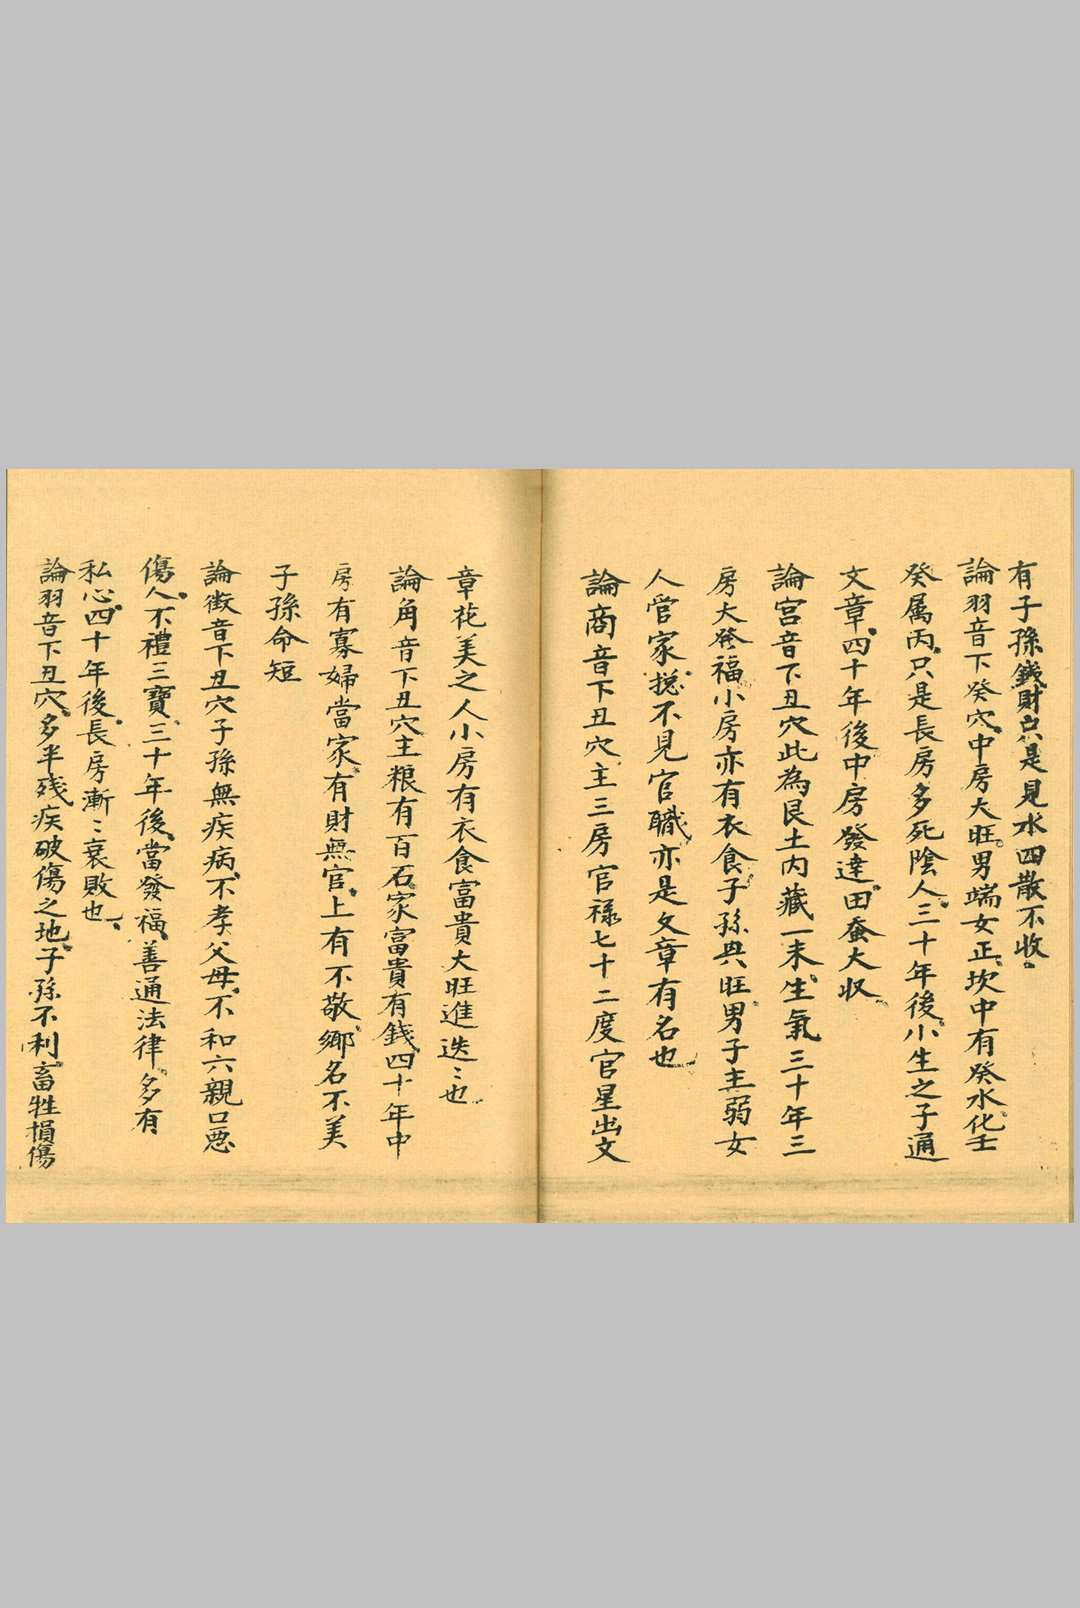 有子孫錢財只是見水四散不收。
論羽音下癸穴。中房大旺。男端女正。坎中有癸水。化壬
癸属丙。只是長房多死陰人。三十年後。小生之子通
文章。四十年後中房發達。田蚕大収
論宮音下丑穴。此為艮土内藏一未生氣。三十年三
房大發福。小房亦有衣食。子孫興旺。男子主弱。女
人管家。摠不見官職。亦是文章有名也
論商音下丑穴。主三房官禄七十二度官星。出文
章花美之人。小房有衣食富貴大旺進迭〻也
論角音下丑穴。主粮有百石。家富貴有錢。四十年中
房有寡婦當家。有財無官。上有不敬。鄉名不美
子孫命短
論徴音下丑穴。子孫無疾病。不孝父母。不和六親。口惡
傷人。不禮三寶。三十年後。當發福。善通法律。多有
私心。四十年後。長房漸〻衰敗也。
論羽音下丑穴。多半残疾破傷之地。子孫不利。畜牲損傷